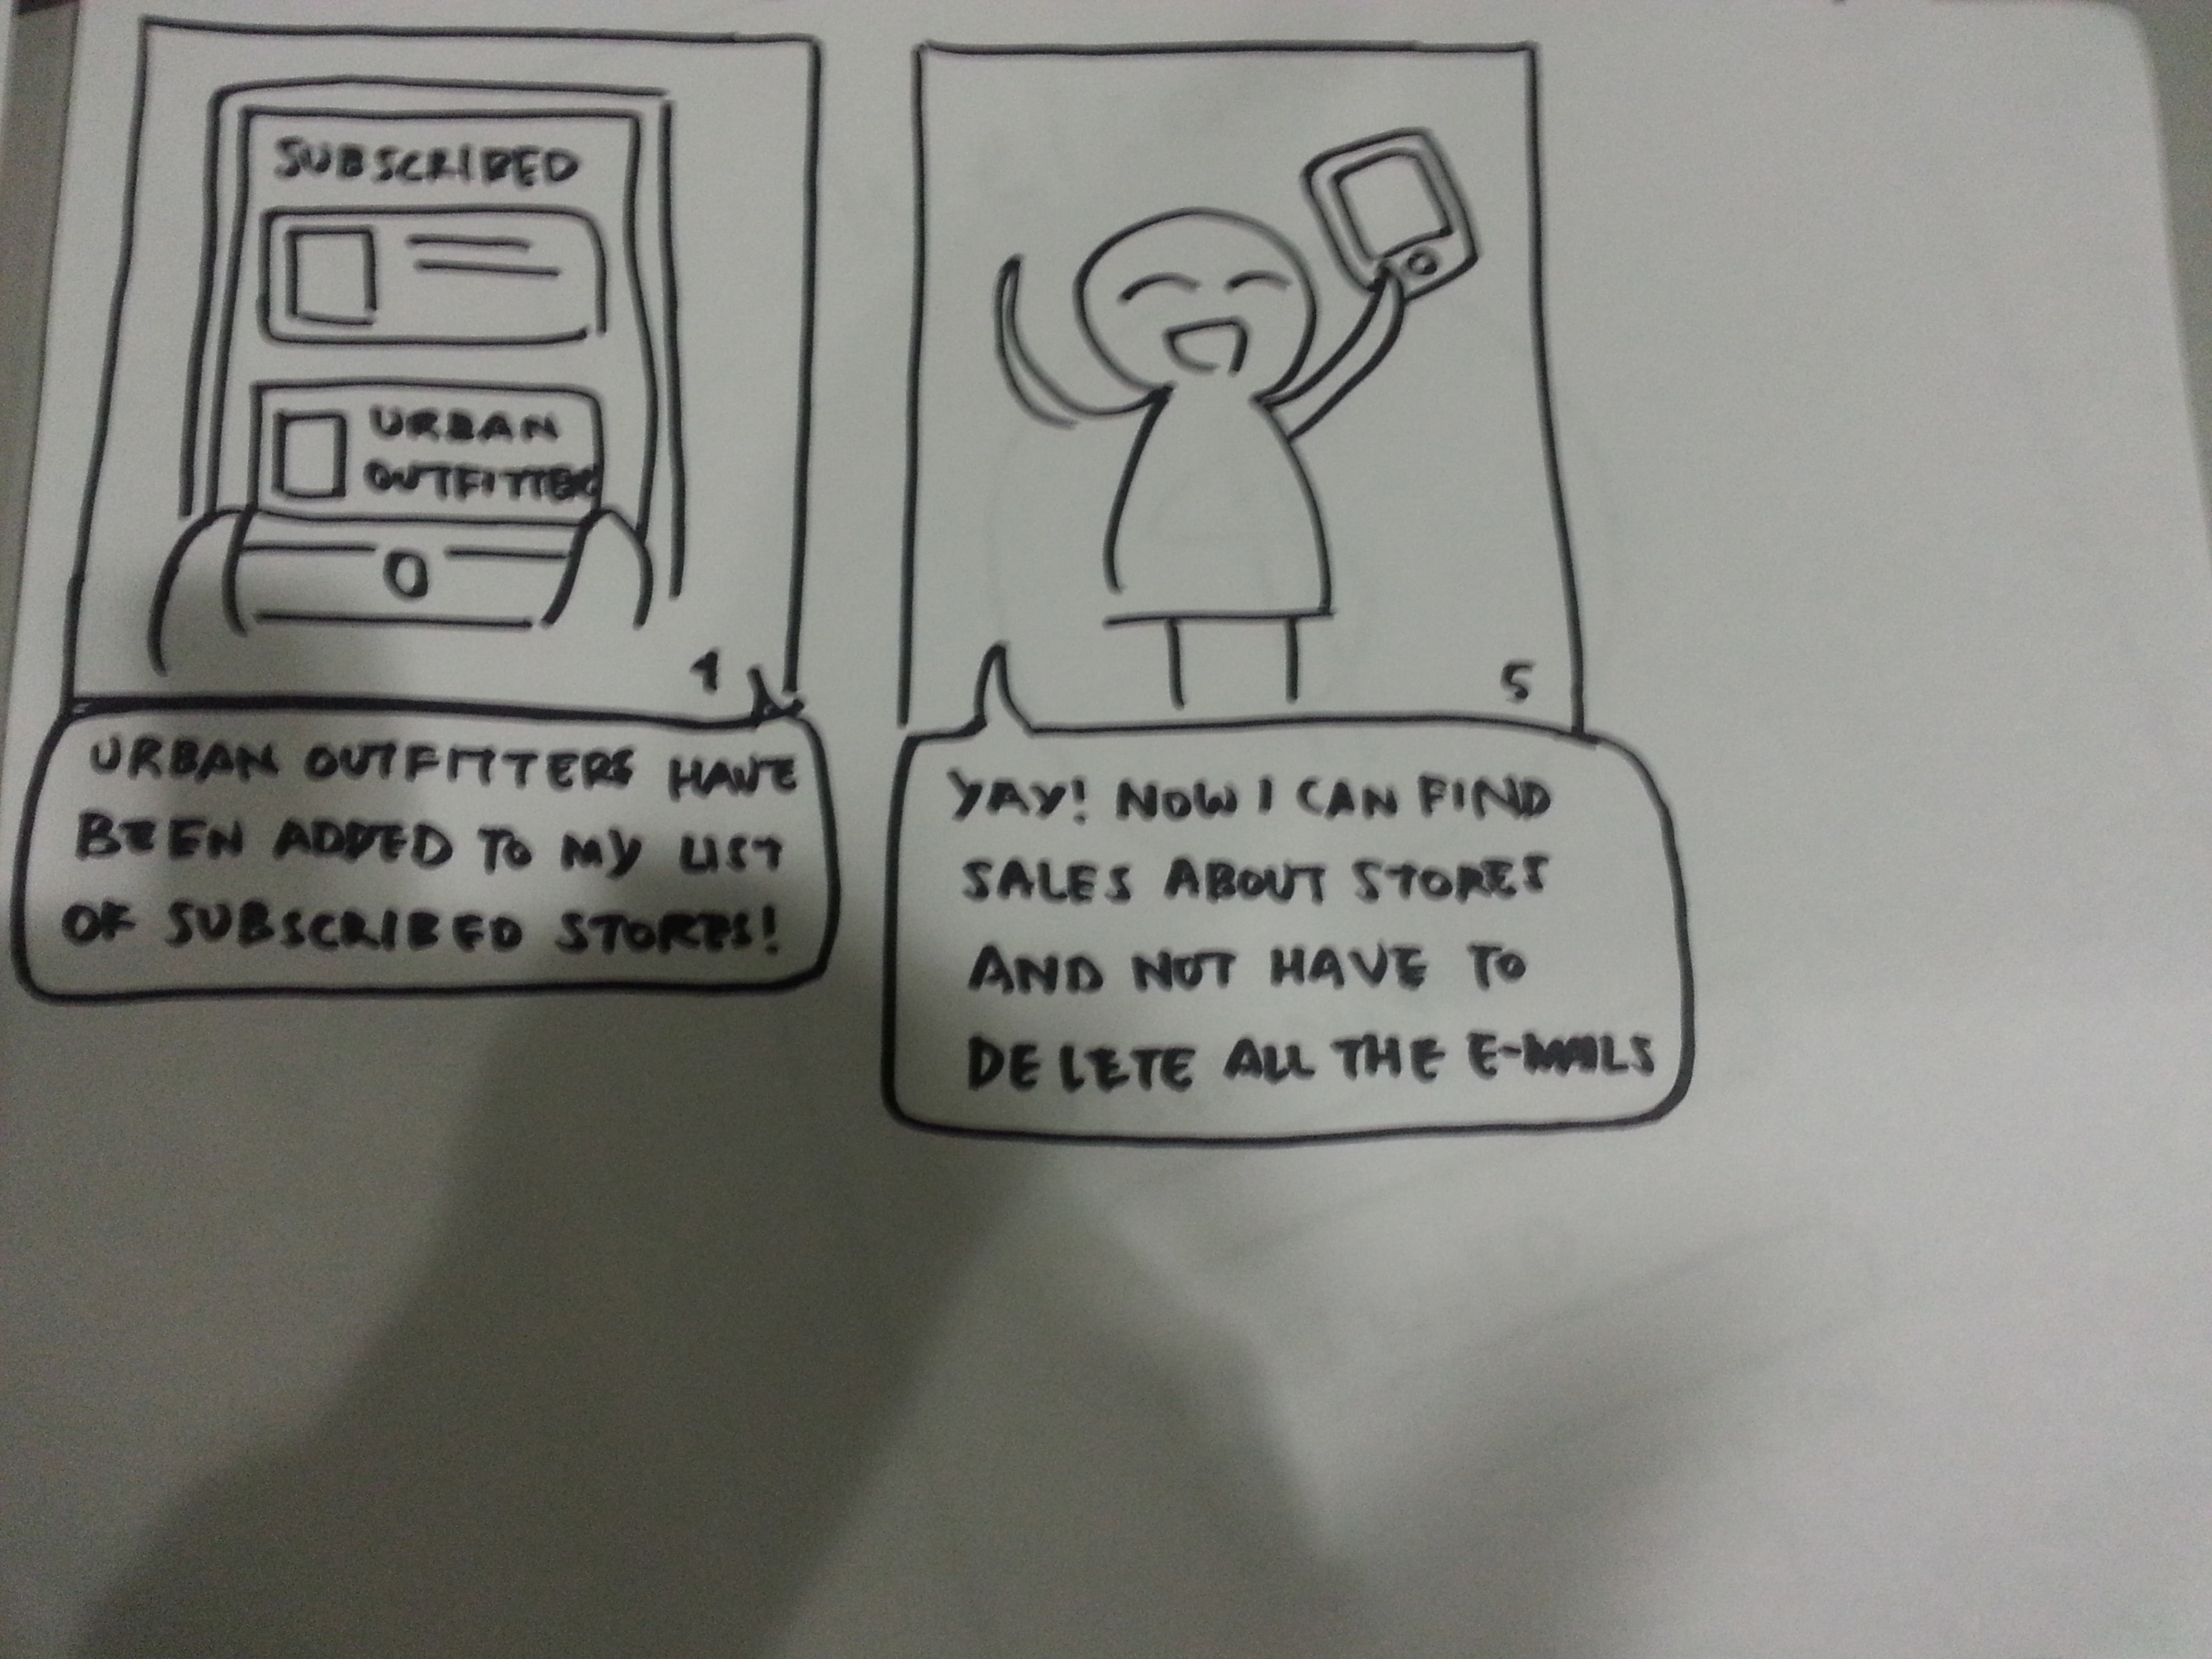 SUBSCRIBED
URBAN
OUTFITTERS
4
URBAN OUTFITTERS HAVE
BEEN ADDED TO MY LIST
OF SUBSCRIBED STORES!
5
YAY! NOW I CAN FIND
SALES ABOUT STORES
AND NOT HAVE TO
DELETE ALL THE E-MAILS